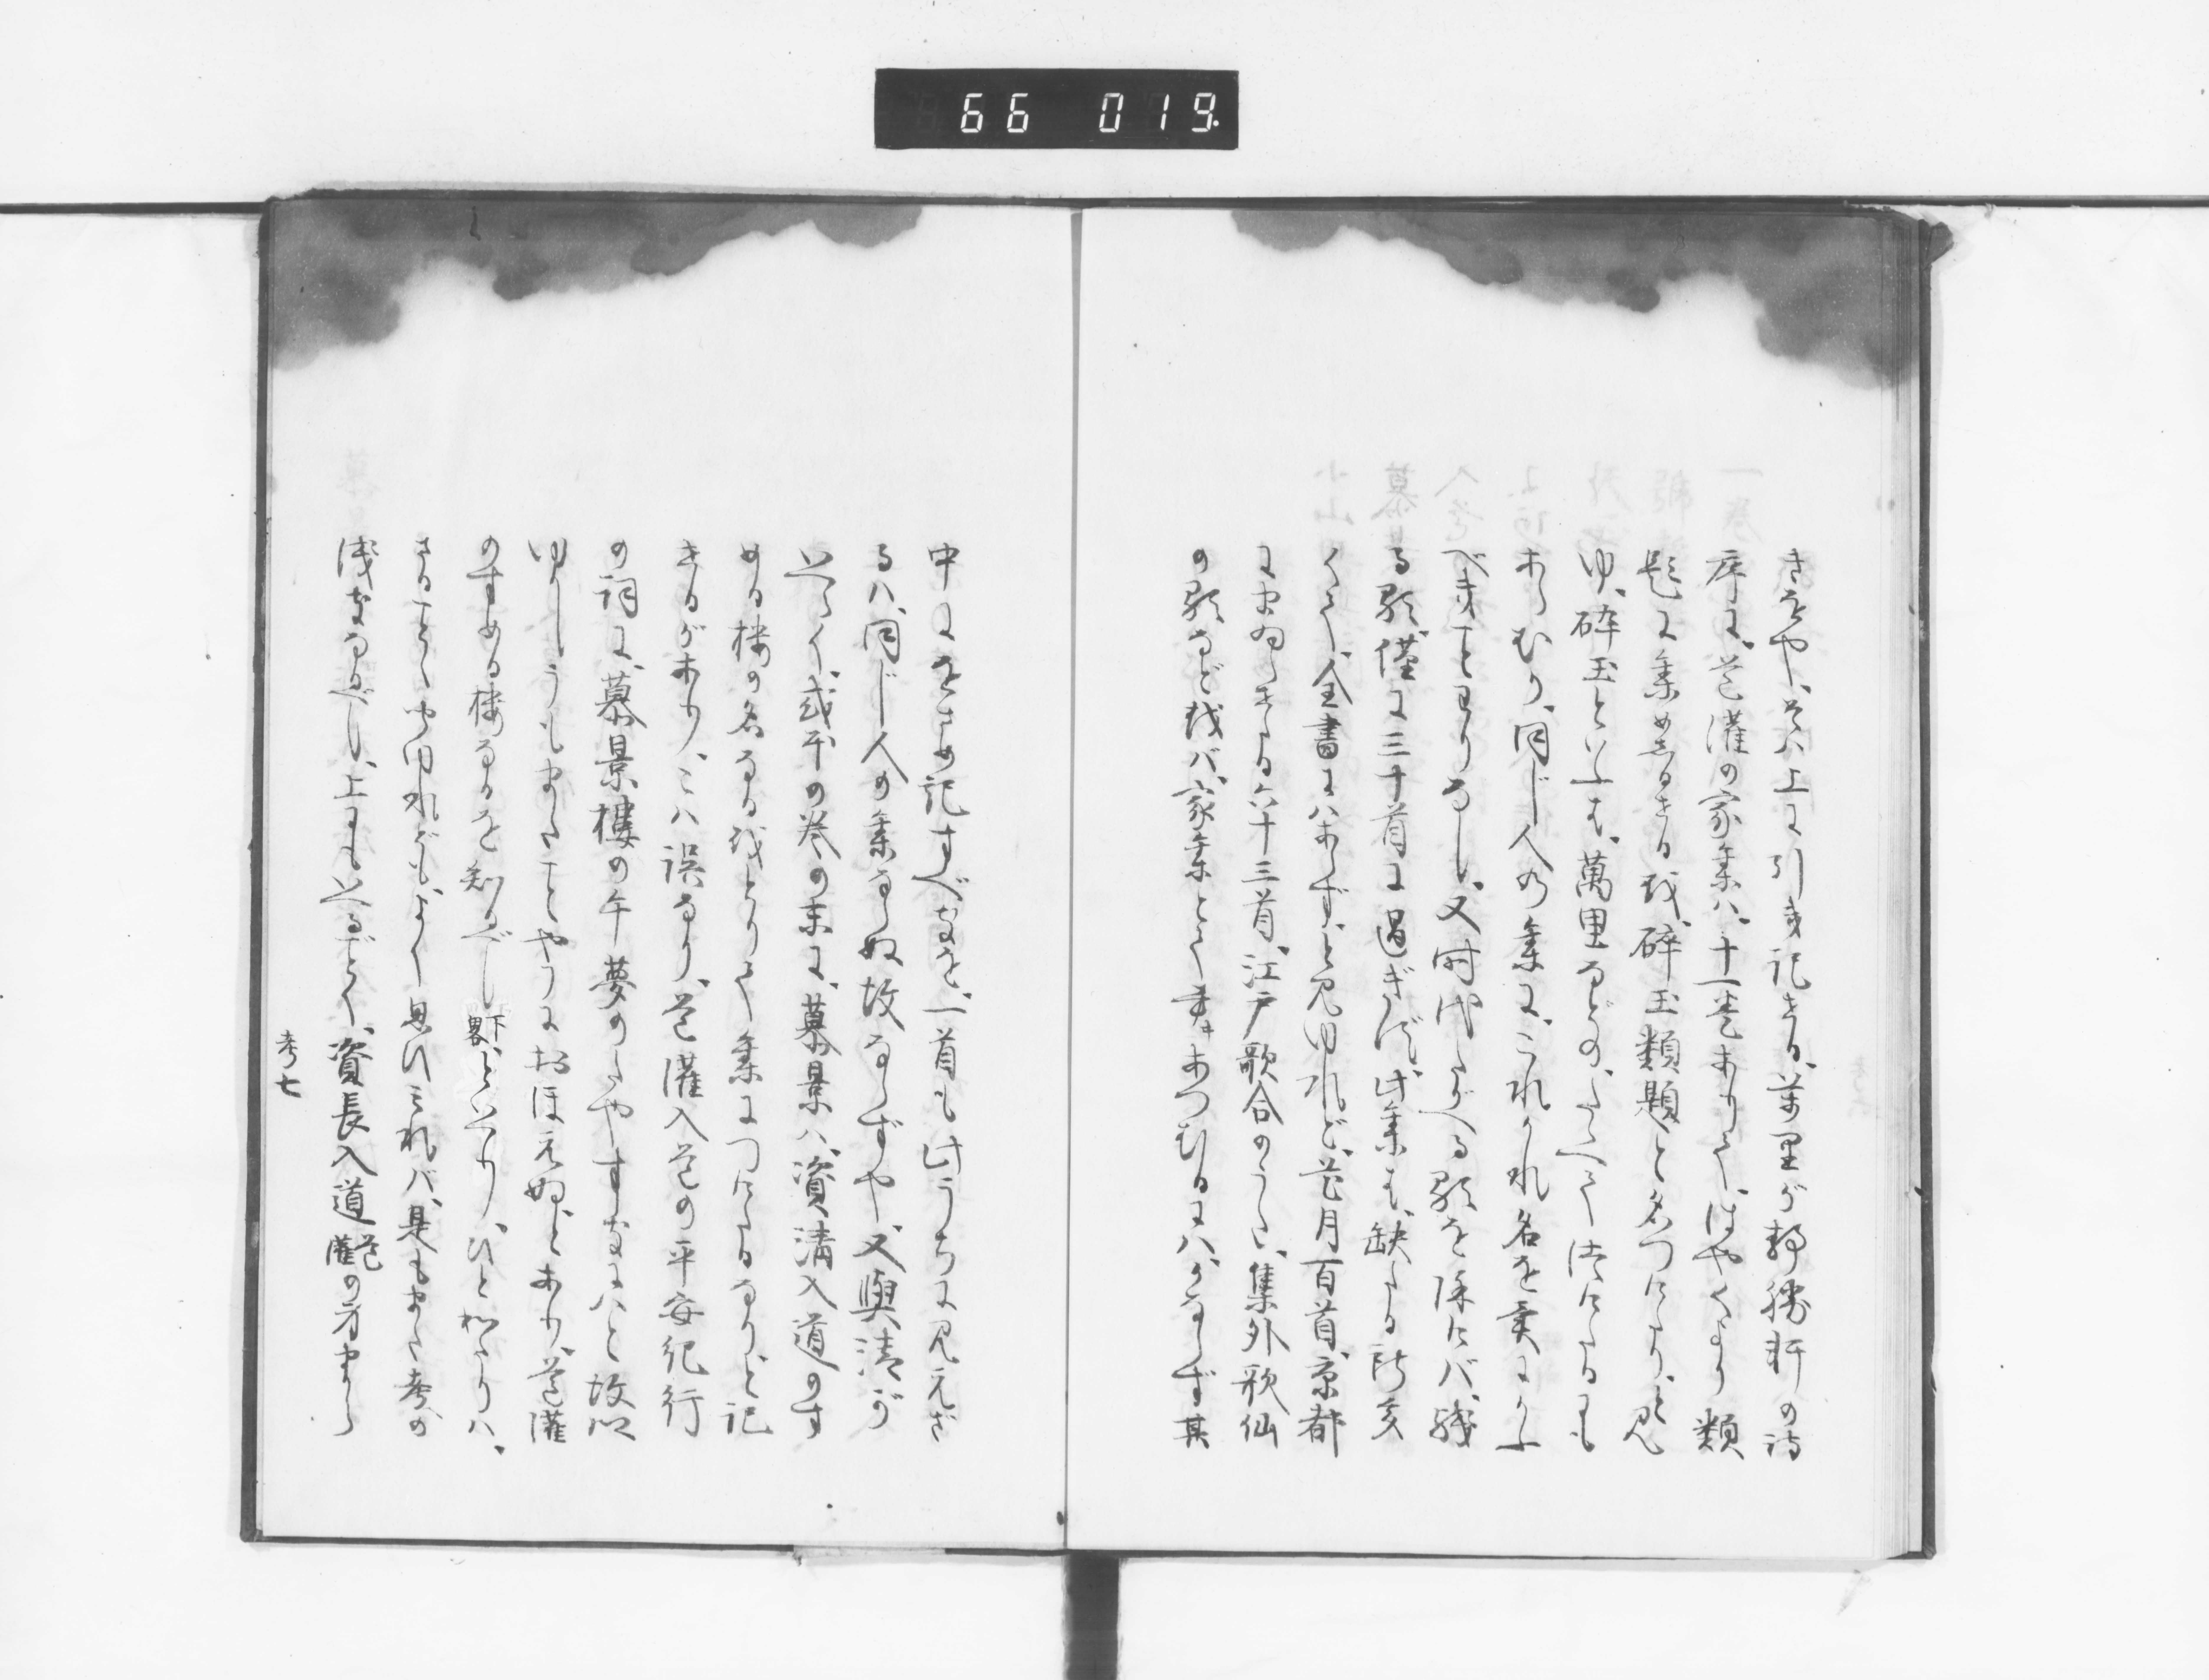 66 019
きをや、そハ上に引き記せる、萬里が靜勝軒の詩
序に、道灌の家集ハ、十一巻ありて、はやくより類
題に集めたるを、碎玉類題と名つけたり、と見
ゆ、碎玉といふも、萬里などの、たゝへて
あらむか、同じ人の集に、これかれ名を異にいふ
べきことわりなし、又時代たがへる歌を除けバ、残
る歌、僅に三十首に過ぎず、此集も、缺たる所多
くて、全書にハあらず、と見ゆれど、花月百首、京都
にまゐ六十三首、江戸歌合のうた、集外歌仙
の歌などをバ、家集とて集あつむるにハ、かならず其
中にをさめ記すべきを、一首も此うちに見えざ
るハ、同じ人の集ならぬ故ならずや、又與清が
いへらく、或本の巻の末に、慕景ハ、資清入道のす
める樓の名なるをとりて集につけたるなりと記
せるがあり、こハ誤なり、道灌入道の平安紀行
の詞に、慕景樓の午夢のたやすきにハと故郷
ゆかしうもまたことやうにおほえぬ、とあり、道灌
のすめる樓なるを知るべし下畧、といへり、ひとわたりハ、
さることゝ聞ゆれども、よく思ひみれバ、是もまた考の
浅きなるべし、上にもいへるごとく、資長入道道灌の方より
考七